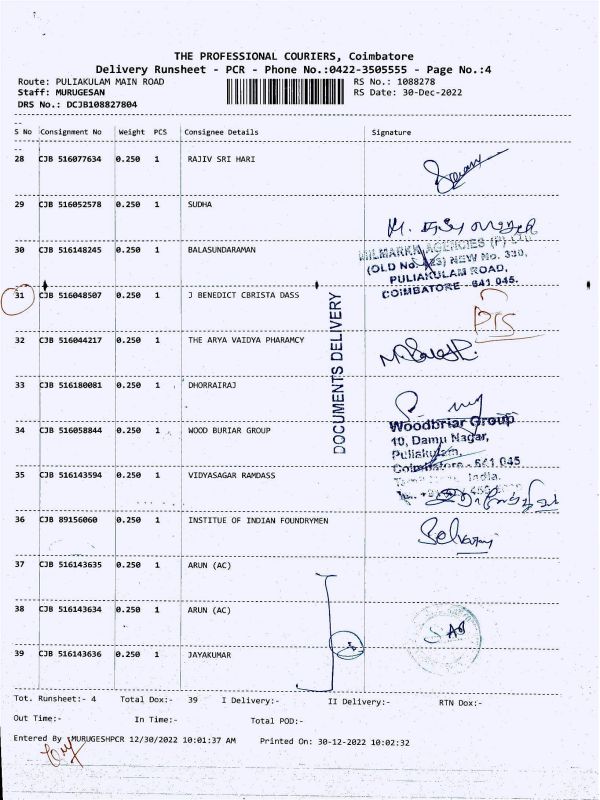 THE PROFESSIONAL COURIERS, Coimbatore
Delivery Runsheet - PCR - Phone No.:0422-3505555 - Page No.:4
Route: PULIAKULAM MAIN ROAD RS No.: 1088278
Staff: MURUGESAN RS Date: 30-Dec-2022
DRS No.: DCJB108827804
S No Consignment No Weight PCS Consignee Details Signature
28 CJB 516077634 0.250 1 RAJIV SRI HARI
29 CJB 516052578 0.250 1 SUDHA
30 CJB 516148245 0.250 1 BALASUNDARAMAN
MILMARKK AGENCIES (P) LTD
(OLD No. 423) NEW No. 330,
PULIAKULAM ROAD,
COIMBATORE - 641 045.
31 CJB 516048507 0.250 1 J BENEDICT CBRISTA DASS
DOCUMENTS DELIVERY
32 CJB 516044217 0.250 1 THE ARYA VAIDYA PHARAMCY
33 CJB 516180081 0.250 1 DHORRAIRAJ
34 CJB 516058844 0.250 1 WOOD BURIAR GROUP
Woodbriar Group
10, Damu Nagar,
Puliakulam,
Coimbatore - 641 045
India.
35 CJB 516143594 0.250 1 VIDYASAGAR RAMDASS
36 CJB 89156060 0.250 1 INSTITUE OF INDIAN FOUNDRYMEN
Selvaraj
37 CJB 516143635 0.250 1 ARUN (AC)
38 CJB 516143634 0.250 1 ARUN (AC)
39 CJB 516143636 0.250 1 JAYAKUMAR
Tot. Runsheet:- 4 Total Dox:- 39 I Delivery:- II Delivery:- RTN Dox:-
Out Time:- In Time:- Total POD:-
Entered By :MURUGESHPCR 12/30/2022 10:01:37 AM Printed On: 30-12-2022 10:02:32